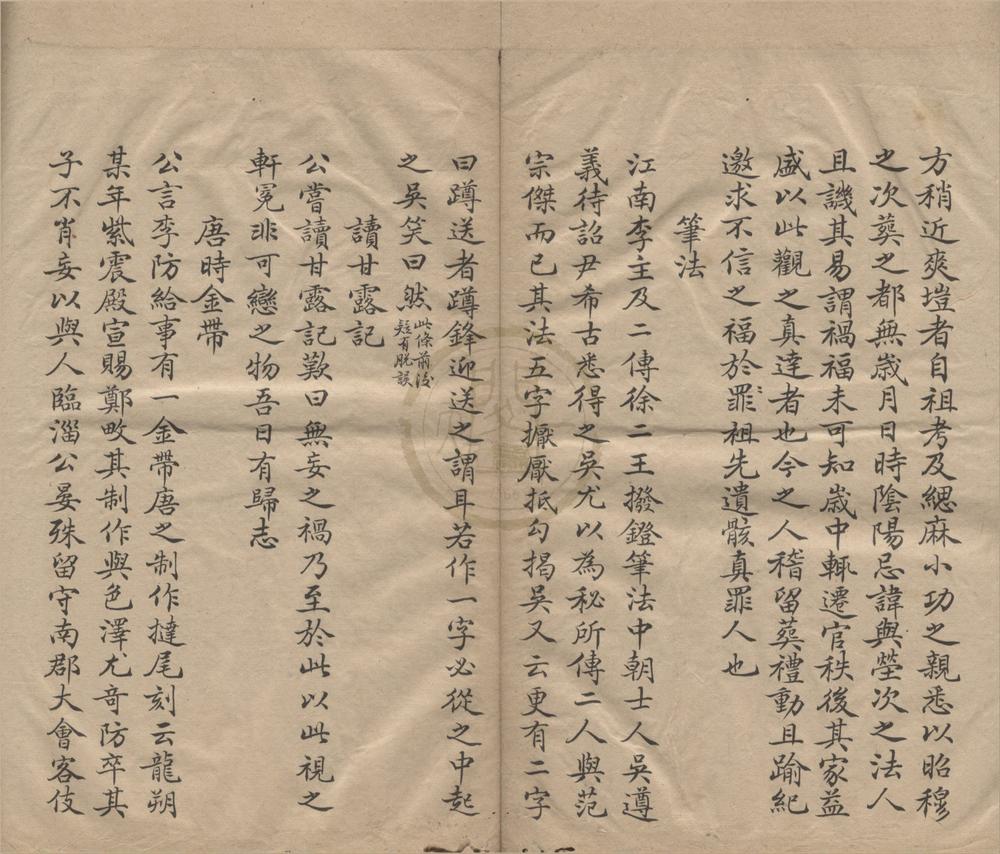 方稍近爽塏者自祖考及緦麻小功之親悉以昭穆
之次葬之都無歲月日時陰陽忌諱與塋次之法人
且譏其易謂禍福未可知歲中輒遷官秩後其家益
盛以此觀之真達者也今之人稽留葬禮動且踰紀
邀求不信之福於罪祖先遺骸真罪人也
筆法
江南李主及二傳徐二王撥鐙筆法中朝士人吳遵
義待詔尹希古悉得之吳尤以為秘所傳二人與范
宗傑而已其法五字擫厭抵勾揭吳又云更有二字
曰蹲送者蹲鋒迎送之謂耳若作一字必從之中起
之吳笑曰然此條前後短有脫誤
讀甘露記
公嘗讀甘露記歎曰無妄之禍乃至於此以此視之
軒冕非可戀之物吾日有歸志
唐時金帶
公言李防給事有一金帶唐之制作撻尾刻云龍朔
某年紫震殿宣賜鄭畋其制作與色澤尤奇防卒其
子不肖妄以與人臨淄公晏殊留守南郡大會客伎